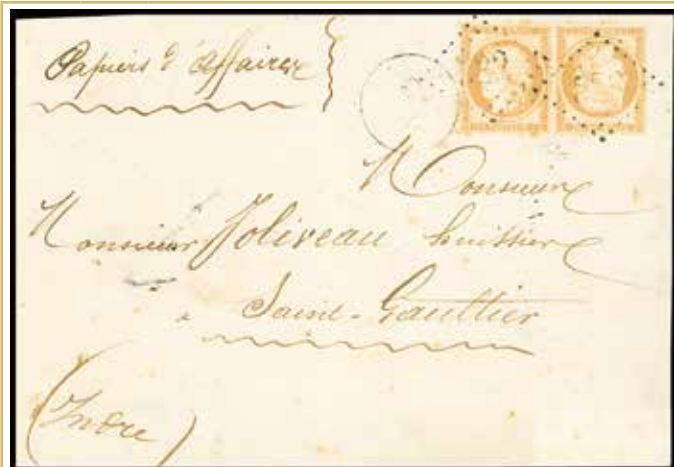 Papiers d'affaires
Monsieur
Monsieur Joliveau huissier
à Saint-Gaultier
(Indre)